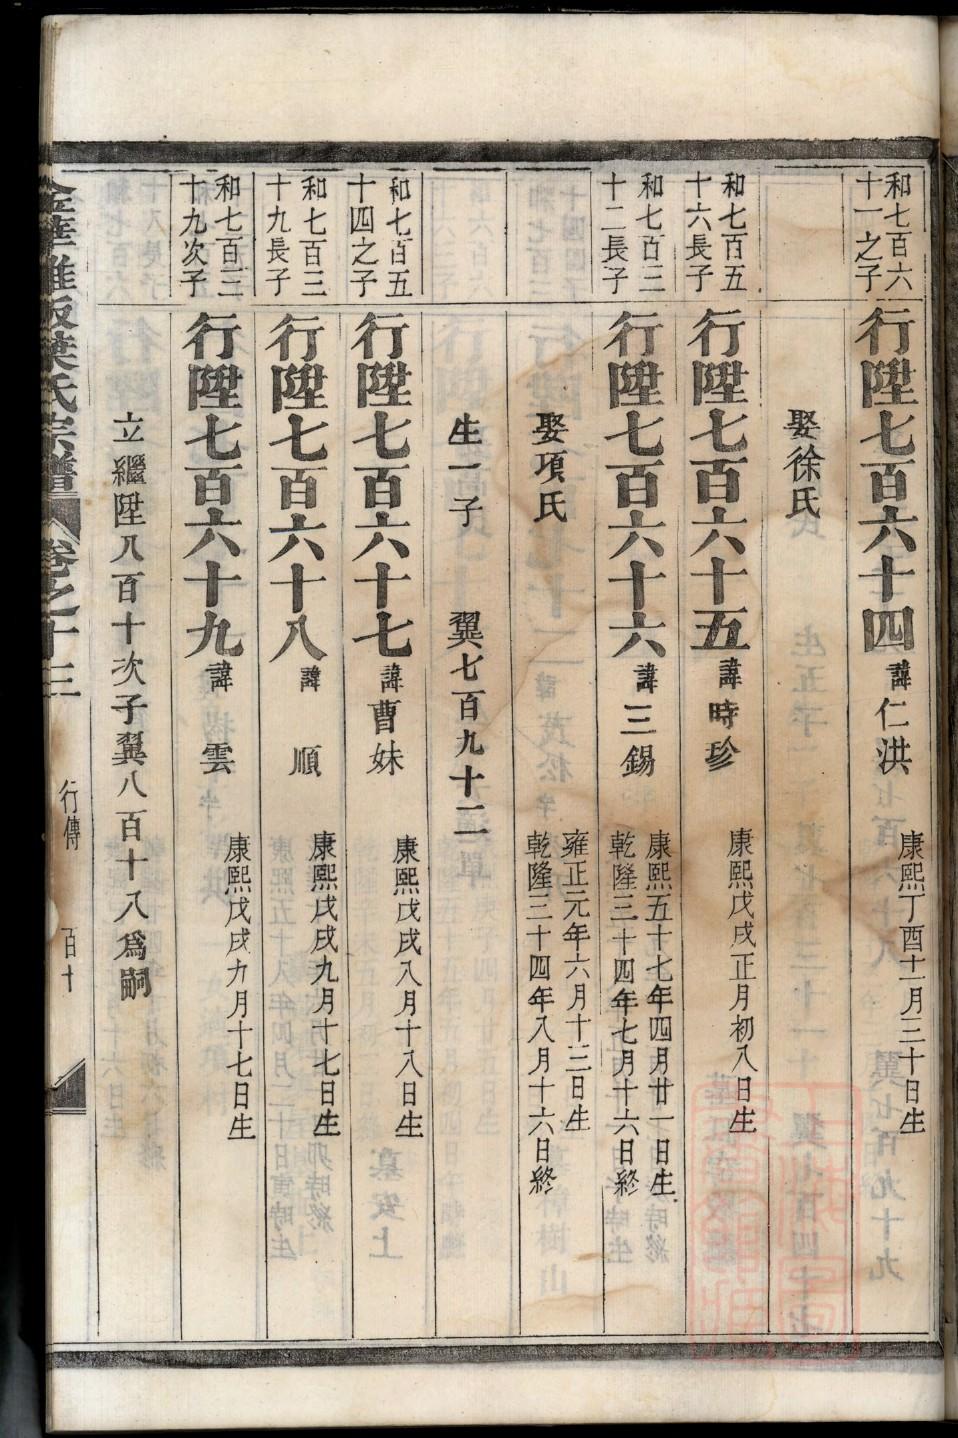 和七百六
十一之子
行陞七百六十四 諱仁洪 康熙丁酉十一月三十日生
娶徐氏
和七百五
十六長子
行陞七百六十五 諱時珍 康熙戊戌正月初八日生
和七百三
十二長子
行陞七百六十六 諱三錫 康熙五十七年四月廿一日生
乾隆三十四年七月十六日終
娶項氏 雍正元年六月十三日生
乾隆三十四年八月十六日終
生一子 翼七百九十二
和七百五
十四之子
行陞七百六十七 諱曹妹 康熙戊戌八月十八日生
和七百三
十九長子
行陞七百六十八 諱順 康熙戊戌九月十七日生
和七百三
十九次子
行陞七百六十九 諱雲 康熙戊戌九月十七日生
立繼陞八百十次子翼八百十八為嗣
葉氏宗譜 卷之十三 行傳 百十